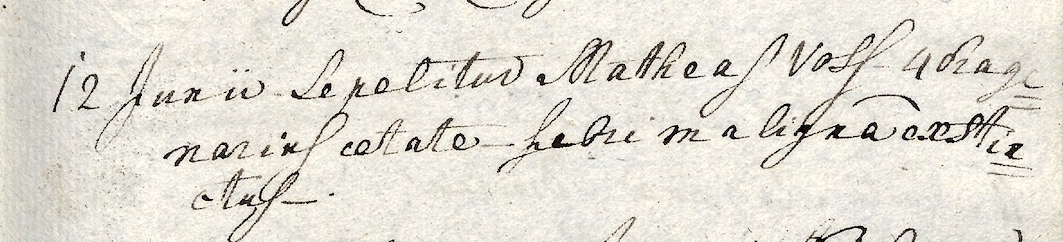 12 Junii Sepelitur Matheas Voss 40rage=
narius aetate febri maligna exstin=
ctus.